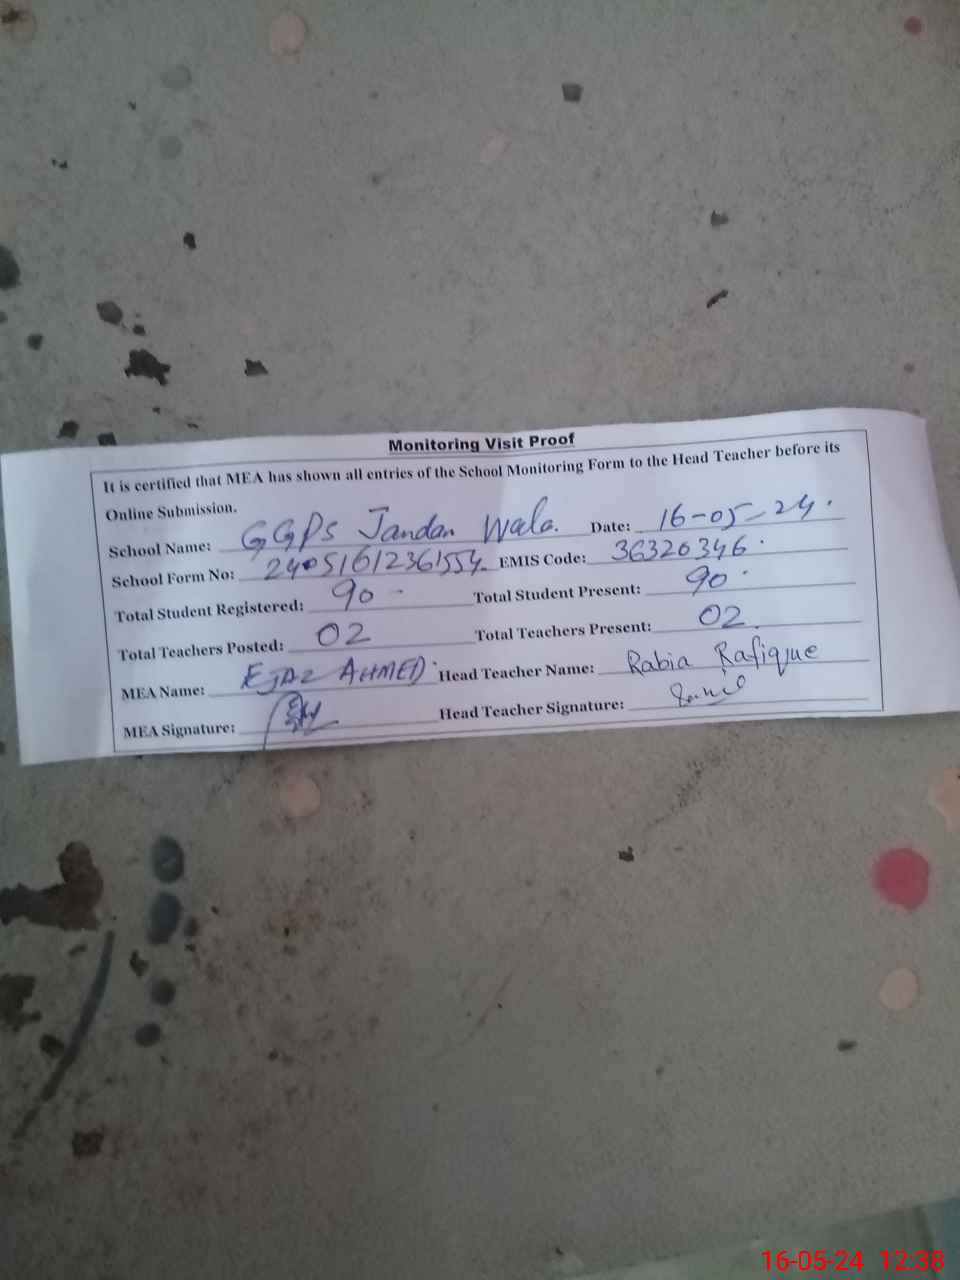 Monitoring Visit Proof
It is certified that MEA has shown all entries of the School Monitoring Form to the Head Teacher before its
Online Submission.
School Name: GGPS Jandan Wala. Date: 16-05-24.
School Form No: 24051612361554 EMIS Code: 36320346.
Total Student Registered: 90 Total Student Present: 90
Total Teachers Posted: 02 Total Teachers Present: 02
MEA Name: EJAZ AHMED Head Teacher Name: Rabia Rafique
MEA Signature: Head Teacher Signature:
16-05-24 12:38